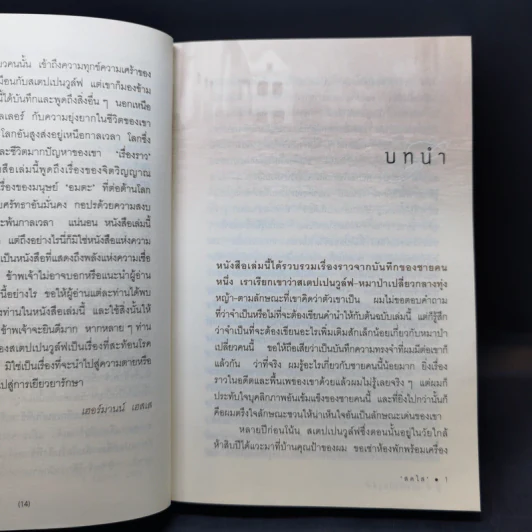 ยวคนนั้น เข้าถึงความทุกข์ความเศร้าของ
มือนกับสเตปเปนวูล์ฟ แต่เขาก็มองข้าม
นี้ได้บันทึกและพูดถึงสิ่งอื่น ๆ นอกเหนือ
ลเลอร์ กับความยุ่งยากในชีวิตของเขา
โลกอันสูงส่งอยู่เหนือกาลเวลา โลกซึ่ง
ละชีวิตมากปัญหาของเขา 'เรื่องราว'
สือเล่มนี้พูดถึงเรื่องของจิตวิญญาณ
รื่องของมนุษย์ 'อมตะ' ที่ต่อต้านโลก
ยศรัทธาอันมั่นคง กอปรด้วยความสงบ
ะพ้นกาลเวลา แน่นอน หนังสือเล่มนี้
แต่ถึงอย่างไรนี่ก็มิใช่หนังสือแห่งความ
เป็นหนังสือที่แสดงถึงพลังแห่งความเชื่อ
ข้าพเจ้าไม่อาจบอกหรือแนะนำผู้อ่าน
นี้อย่างไร ขอให้ผู้อ่านแต่ละท่านได้พบ
ท่านในหนังสือเล่มนี้ และใช้สิ่งนั้นให้
ข้าพเจ้าจะยินดีมาก หากหลาย ๆ ท่าน
องสเตปเปนวูล์ฟเป็นเรื่องที่สะท้อนโรค
มิใช่เป็นเรื่องที่จะนำไปสู่ความตายหรือ
ปสู่การเยียวยารักษา
เฮอร์มานน์ เฮสเส
(14)
บทนำ
หนังสือเล่มนี้ได้รวบรวมเรื่องราวจากบันทึกของชายคน
หนึ่ง เราเรียกเขาว่าสเตปเปนวูล์ฟ-หมาป่าเปลี่ยวกลางทุ่ง
หญ้า-ตามลักษณะที่เขาคิดว่าตัวเขาเป็น ผมไม่ขอตอบคำถาม
ที่ว่าจำเป็นหรือไม่ที่จะต้องเขียนคำนำให้กับต้นฉบับเล่มนี้ แต่ก็รู้สึก
ว่าจำเป็นที่จะต้องเขียนอะไรเพิ่มเติมสักเล็กน้อยเกี่ยวกับหมาป่า
เปลี่ยวคนนี้ ขอให้ถือเสียว่าเป็นบันทึกความทรงจำที่ผมมีต่อเขาก็
แล้วกัน ว่าที่จริง ผมรู้อะไรเกี่ยวกับชายคนนี้น้อยมาก ยิ่งเรื่อง
ราวในอดีตและพื้นเพของเขาด้วยแล้วผมไม่รู้เลยจริง ๆ แต่ผมก็
ประทับใจบุคลิกภาพอันเข้มแข็งของชายคนนี้ และที่ยิ่งไปกว่านั้นก็
คือผมตรึงใจลักษณะชวนให้น่าเห็นใจอันเป็นลักษณะเด่นของเขา
หลายปีก่อนโน้น สเตปเปนวูล์ฟซึ่งตอนนั้นอยู่ในวัยใกล้
ห้าสิบปีได้แวะมาที่บ้านคุณป้าของผม ขอเช่าห้องพักพร้อมเครื่อง
1